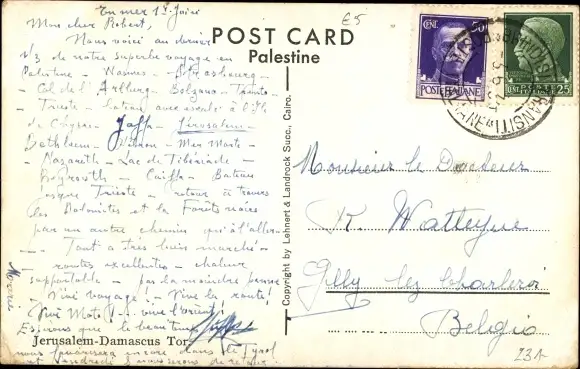 En mer 1er Juin
Mon cher Robert,
Nous voici au dernier
1/3 de notre superbe voyage en
Palestine - Vannes - Strasbourg -
Col de l'Arlberg - Bolzano - Trento -
- Trieste - bateau avec escale à l'île
de Chypre - Jaffa - Jérusalem -
Bethleem - Hébron - Mer Morte -
- Nazareth - Lac de Tibériade -
Beyrouth - Caiffa - Bateau
jusque Trieste - retour à travers
les Dolomites et la Forêts noires
par un autre chemin qu'à l'aller
- Tout a très bien marché -
routes excellentes - chaleur
supportable - pas la moindre panne
Vive voyage! - Vive la route!
Vive Moto! - vive l'orient!
Espérons que le beau temps
nous favorisera encore dans le Tyrol
£5
POST CARD
Palestine
CENT. 50
POSTE ITALIANE
CENT. 25
Copyright by Lehnert & Landrock Succ., Cairo.
Monsieur le Docteur
R. Watteyne
Gilly lez Charleroi
Belgio
Jerusalem-Damascus
23A